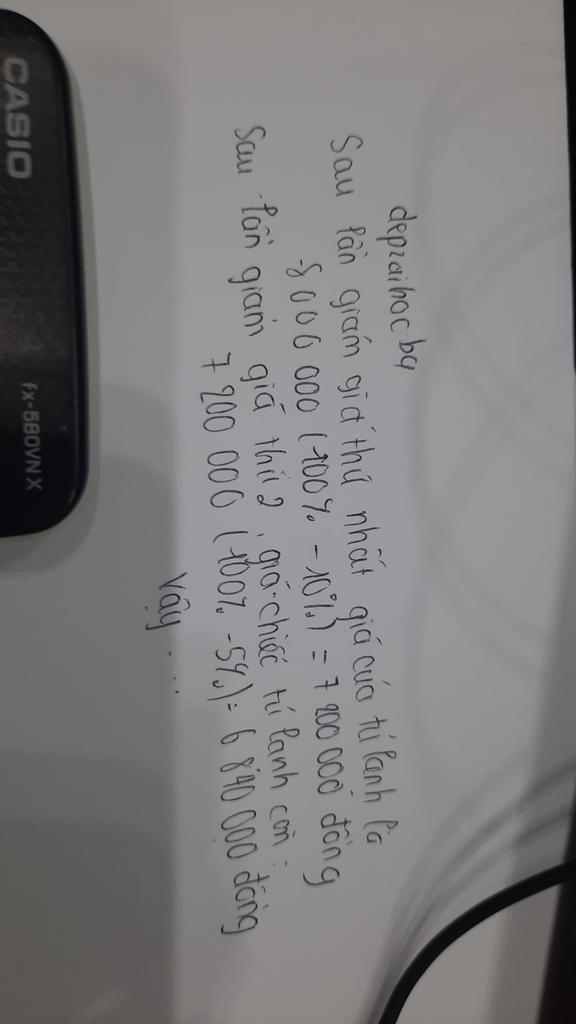 depzaihocba
Sau lần giảm giá thứ nhất giá của tủ lạnh là
8 000 000 (100% - 10%) = 7 200 000 đồng
Sau lần giảm giá thứ 2, giá chiếc tủ lạnh còn:
7 200 000 (100% - 5%) = 6 840 000 đồng
Vậy ....
CASIO
fx-580VN X